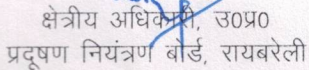 क्षेत्रीय अधिकारी, उ0प्र0
प्रदूषण नियंत्रण बोर्ड, रायबरेली